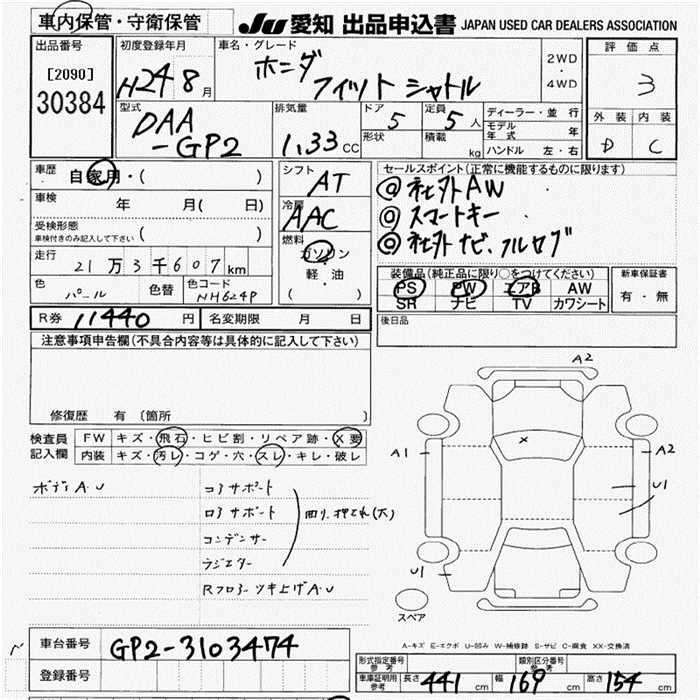 車内保管・守衛保管 JU 愛知 出品申込書 JAPAN USED CAR DEALERS ASSOCIATION
出品番号 初度登録年月 車名・グレード 評価点
[2090] H24 8月 ホンダ フィットシャトル 2WD・4WD 3
30384
型式 排気量 ドア 定員 ディーラー・並行 外装 内装
DAA-GP2 1.33 CC 5 5人 モデル年式 年 D C
形状 積載 kg ハンドル 左・右
車歴 自家用・( ) シフト AT セールスポイント(正常に機能するものに限ります)
車検 年 月( 日) 冷房 AAC ◎社外AW
◎スマートキー
受検形態 車検付きのみ記入して下さい ( ) 燃料 ガソリン ◎社外ナビ、フルセグ
走行 21万3千607km 軽・油 装備品(純正品に限り○をつけてください) 新車保証書
色 パール 色替 色コード NH624P ( ) PS PW エアB AW 有・無
SR ナビ TV カワシート
R券 11440円 名変期限 月 日 後日品
注意事項申告欄(不具合内容等は具体的に記入して下さい)
修復歴 有 〔箇所 〕
検査員記入欄 FW キズ・飛石・ヒビ割・リペア跡・X要
内装 キズ・汚レ・コゲ・穴・スレ・キレ・破レ
ボディA.U コアサポート
ロアサポート 回り、押され(大)
コンデンサー
ラジエター
Rフロアツキ上げA.U
A2
A1 X A2
U1
U1
スペア
A-キズ E-エクボ U-凹み W-補修跡 S-サビ C-腐食 XX-交換済
車台番号 GP2-3103474
登録番号
形式指定番号 参考 類別区分番号 参考
車庫証明用参考 長さ 441cm 幅 169cm 高さ 154cm